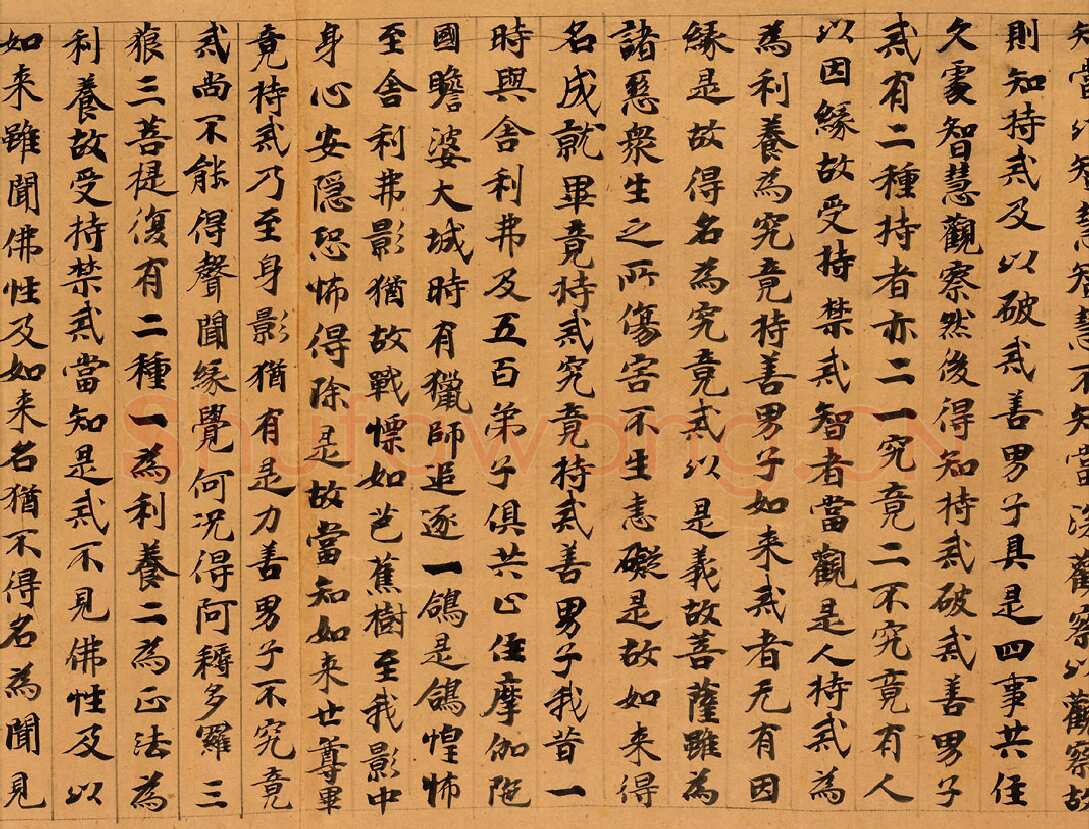 知當以知慧知慧不知當深觀察以觀察故
則知持戒及以破戒善男子具是四事共住
久處智慧觀察然後得知持戒破戒善男子
戒有二種持者亦二一究竟二不究竟有人
以因緣故受持禁戒智者當觀是人持戒為
為利養為究竟持善男子如来戒者无有因
緣是故得名為究竟戒以是義故菩薩雖為
諸惡衆生之所傷害不生恚礙是故如来得
名成就畢竟持戒究竟持戒善男子我昔一
時與舍利弗及五百弟子俱共止住摩伽陁
國瞻婆大城時有獵師追逐一鴿是鴿惶怖
至舍利弗影猶故戰慄如芭蕉樹至我影中
身心安隱恐怖得除是故當知如来世尊畢
竟持戒乃至身影猶有是力善男子不究竟
戒尚不能得聲聞緣覺何況得阿耨多羅三
藐三菩提復有二種一為利養二為正法為
利養故受持禁戒當知是戒不見佛性及以
如来雖聞佛性及如来名猶不得名為聞見
shufawang.CN